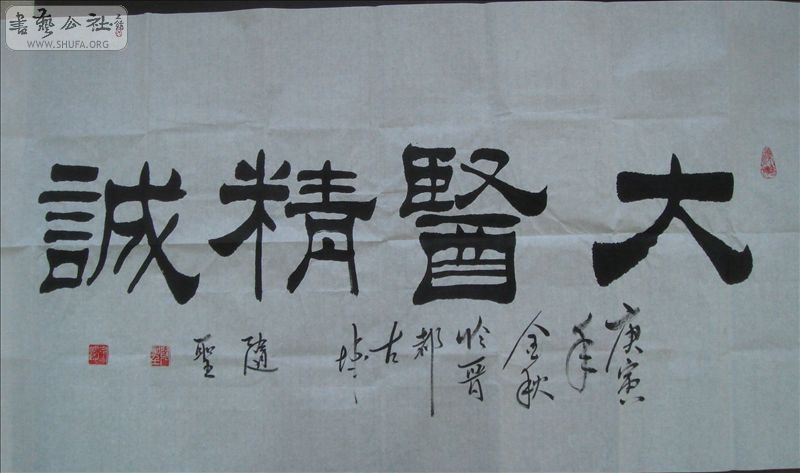 大醫精誠
庚寅
年
金秋
於晉
都
古
城
随
聖
書藝公社
WWW.SHUFA.ORG